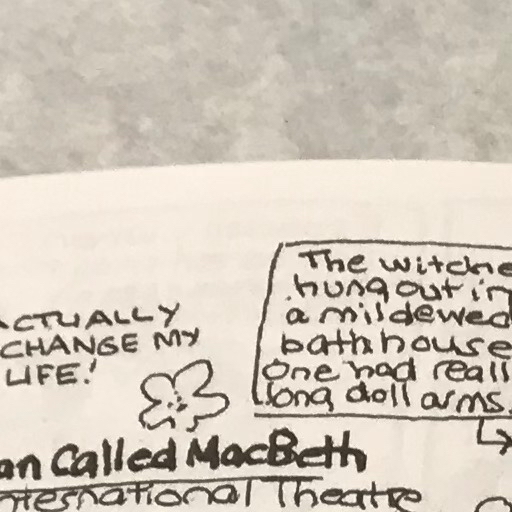 ACTUALLY
CHANGE MY
LIFE!
The witche
hung out in
a mildewed
bathhouse
One had reall
long doll arms.
an Called MacBeth
nternational Theatre